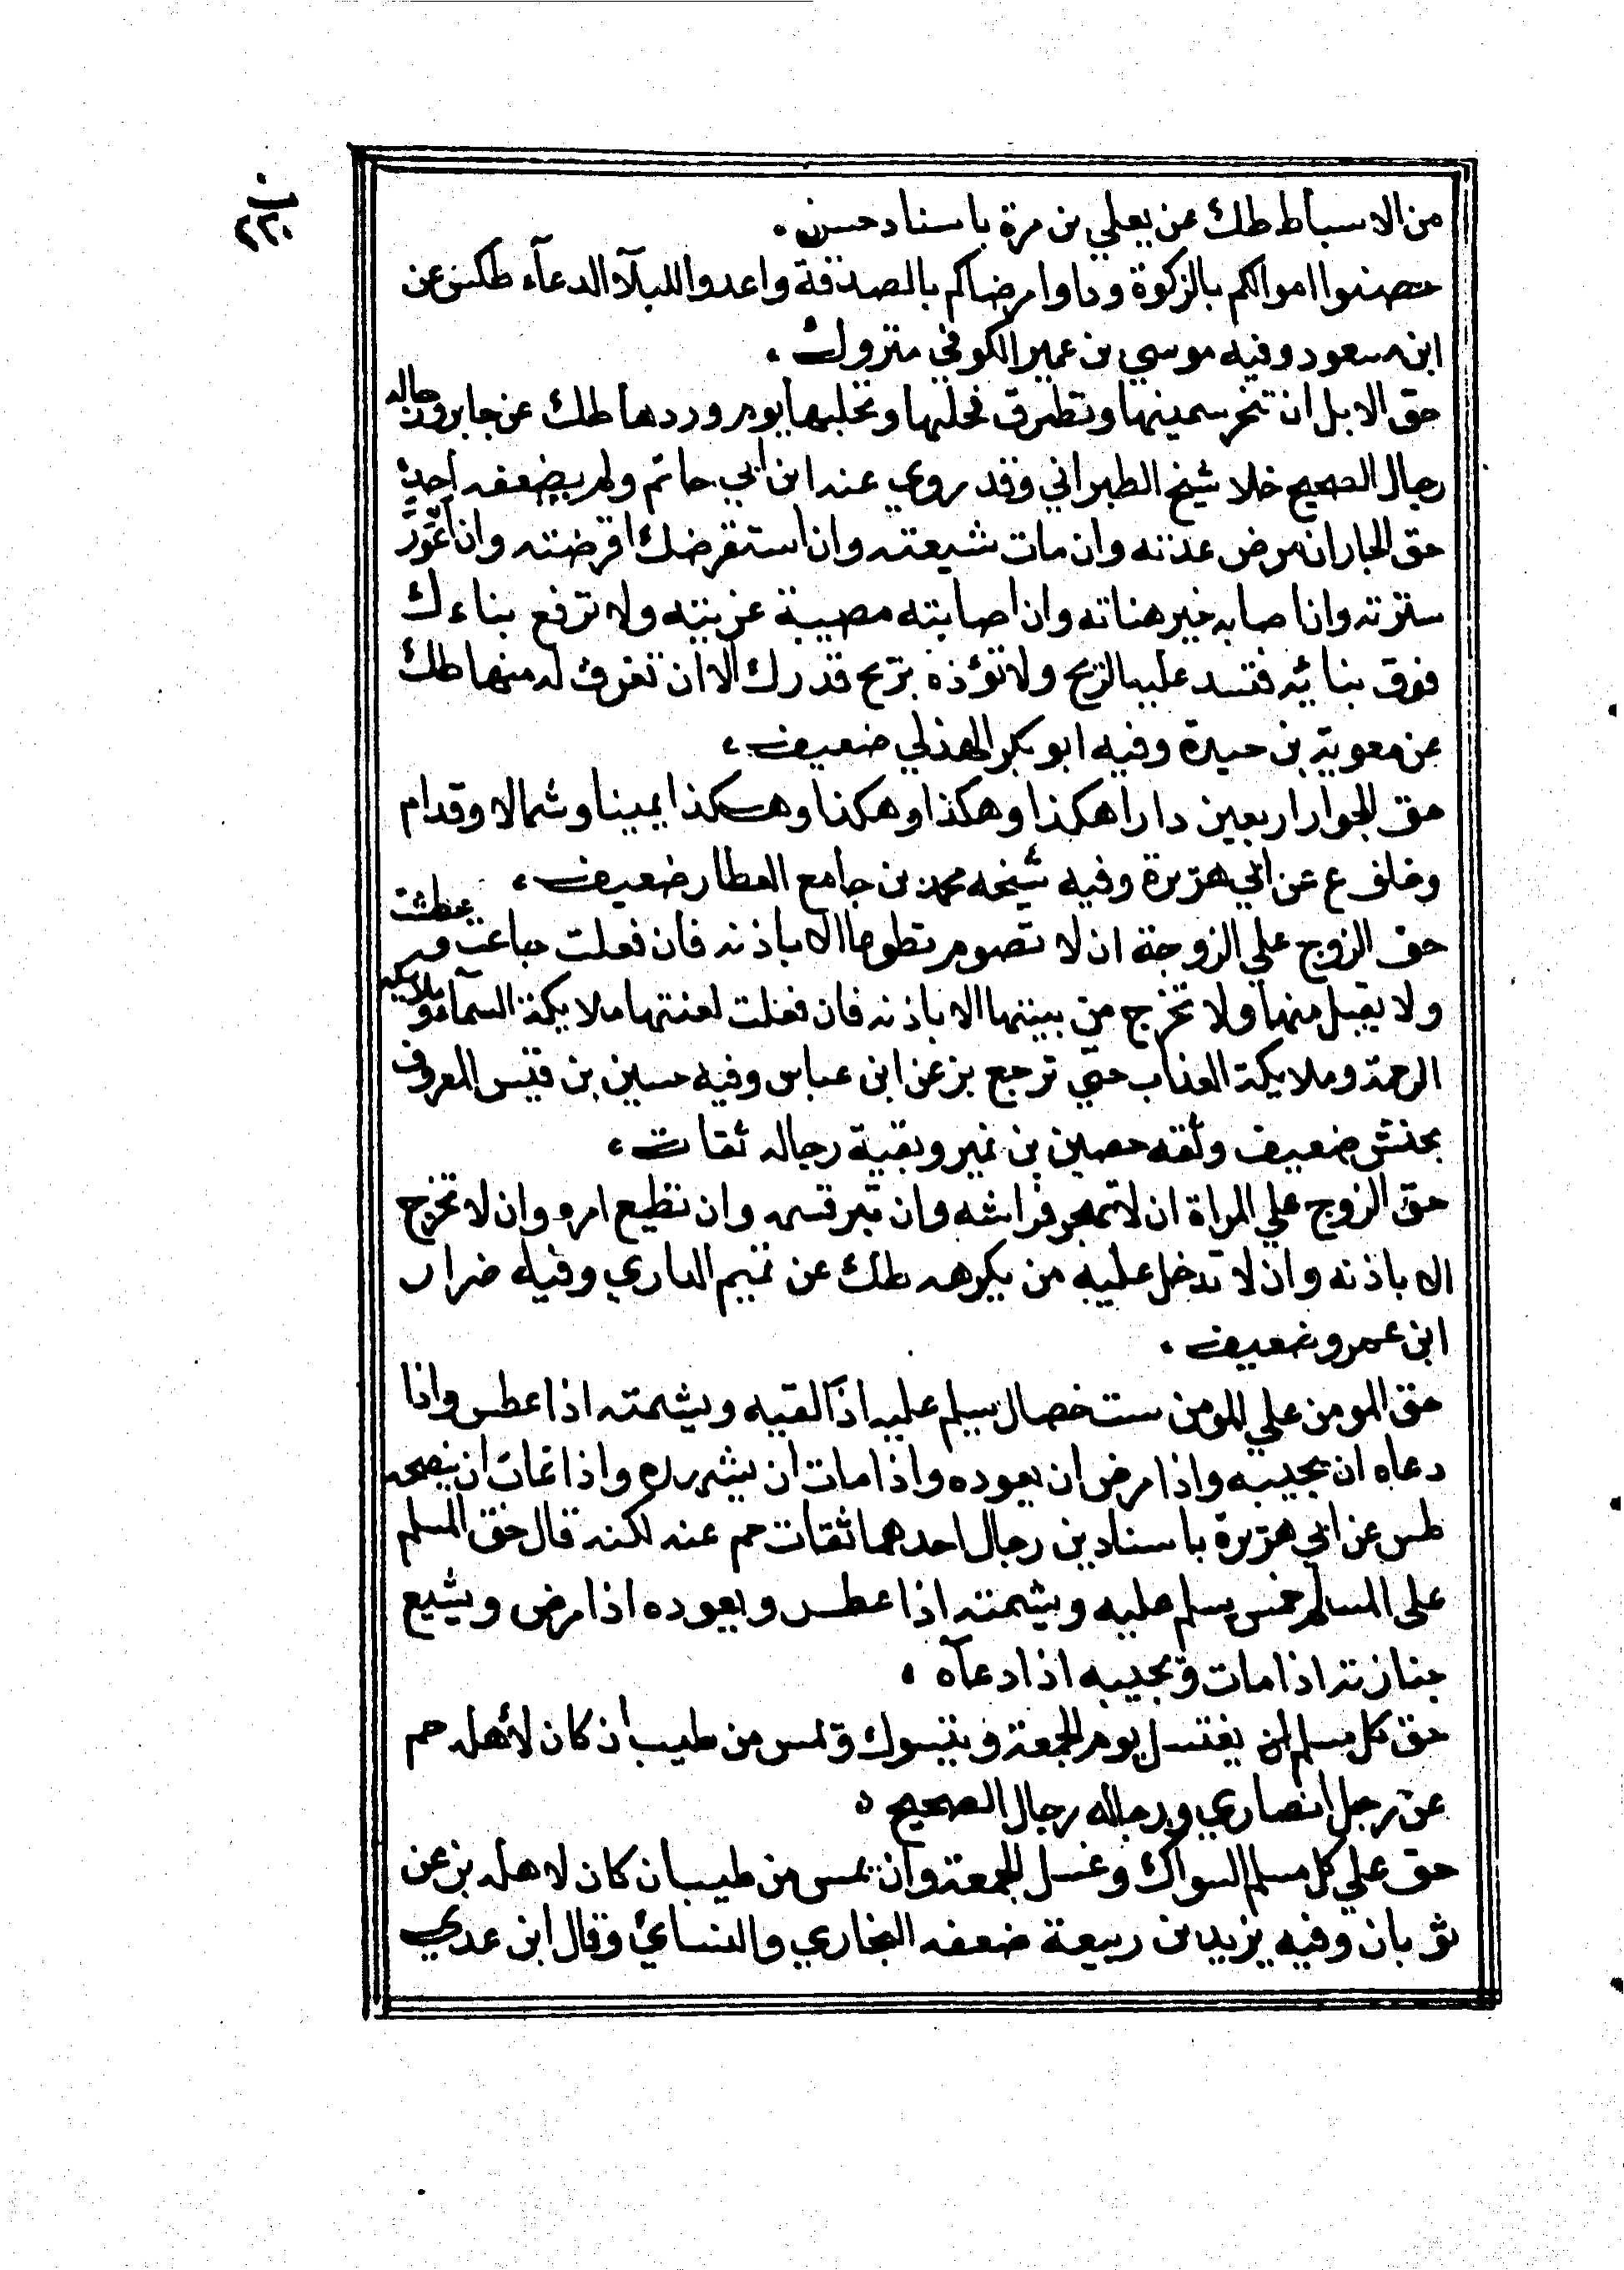 ٢٢٠
من الاسباط طك عن يعلي بن مرة باسناد حسن
حصنوا اموالكم بالزكوة وداوا مرضاكم بالصدقة واعدوا للبلآ الدعآء طكس عن
ابن مسعود وفيه موسي بن عمير الكوفي متروك
حق الابل ان تنحر سمينها وتطرق فحلها وتحلبها يوم وردها طك عن جابر ورجاله
رجال الصحيح خلا شيخ الطبراني وقد روي عنه ابن ابي حاتم ولم يضعفه احد
حق الجار ان مرض عدته وان مات شيعته وان استقرضك اقرضته وان اعور
سترته وان اصابه خير هناته وان اصابته مصيبة عزيته ولا ترفع بناءك
فوق بنائه فتسد عليه الريح ولا تؤذه بريح قدرك الا ان تغرف له منها طك
عن معوية بن حيدة وفيه ابو بكر الهذلي ضعيف
حق الجوار اربعين دارا هكذا وهكذا وهكذا وهكذا يمينا وشمالا وقدام
وخلف ع عن ابي هريرة وفيه شيخه محمد بن جامع العطار ضعيف
حق الزوج علي الزوجة ان لا تصوم تطوعا الا باذنه فان فعلت جاعت وعطشت
ولا يقبل منها ولا تخرج من بيتها الا باذنه فان فعلت لعنتها ملايكة السمآء وملايكة
الرحمة وملايكة العذاب حتي ترجع بز عن ابن عباس وفيه حسين بن قيس المعروف
بحنش ضعيف وثقه حصين بن نمير وبقية رجاله ثقات
حق الزوج علي المراة ان لا تهجر فراشه وان تبر قسمه وان تطيع امره وان لا تخرج
الا باذنه وان لا تدخل عليه من يكرهه طك عن تميم الداري وفيه ضرار
ابن عمرو ضعيف
حق المومن علي المومن ست خصال يسلم عليه اذا لقيه ويشمته اذا عطس واذا
دعاه ان يجيبه واذا مرض ان يعوده واذا مات ان يشهده واذا غاب ان ينصحه
طس عن ابي هريرة باسنادين رجال احدهما ثقات حم عنه لكنه قال حق المسلم
على المسلم خمس يسلم عليه ويشمته اذا عطس ويعوده اذا مرض ويشيع
جنازته اذا مات ويجيبه اذا دعاه
حق كل مسلم ان يغتسل يوم الجمعة ويتسوك ويمس من طيب ان كان لأهله حم
عن رجل انصاري ورجاله رجال الصحيح
حق علي كل مسلم السواك وغسل الجمعة وان يمس من طيب ان كان لاهله بز عن
ثوبان وفيه يزيد بن ربيعة ضعفه البخاري والنسائي وقال ابن عدي